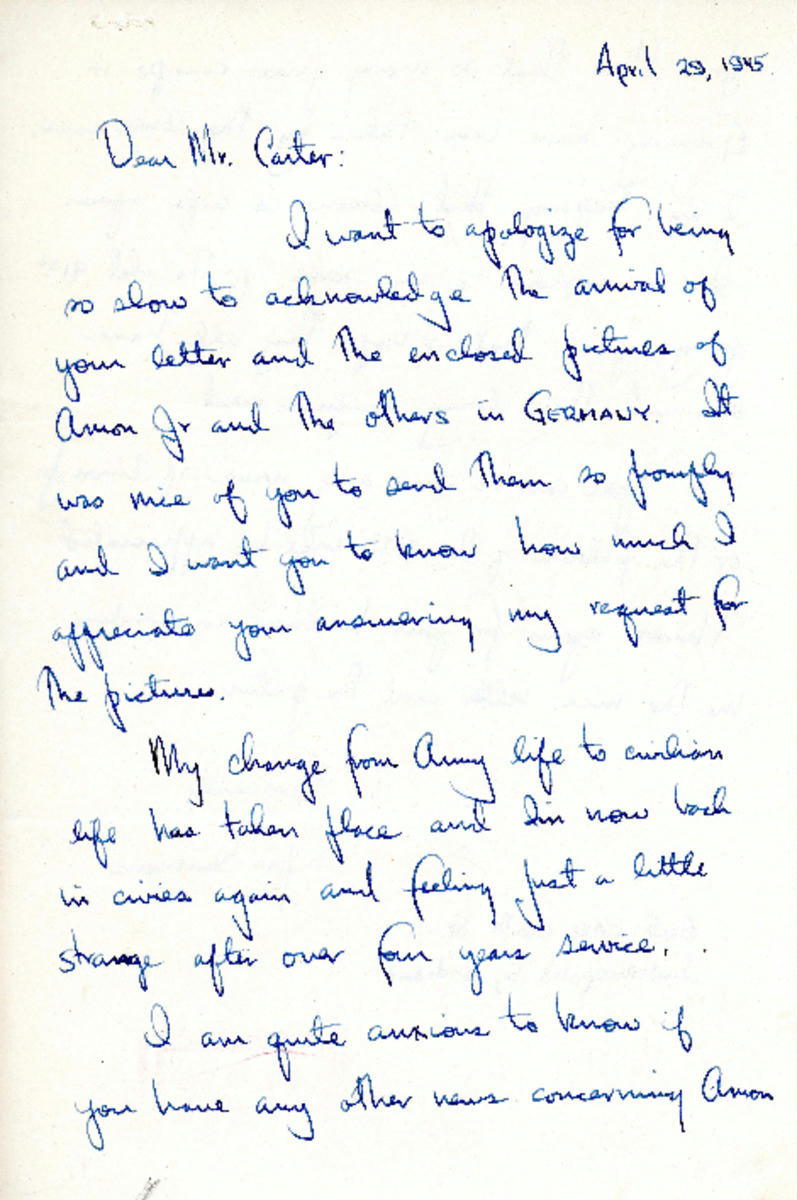 April 29, 1945.
Dear Mr. Carter:
I want to apologize for being
so slow to acknowledge the arrival of
your letter and the enclosed pictures of
Amon Jr and the others in GERMANY. It
was nice of you to send them so promply
and I want you to know how much I
appreciate your answering my request for
the pictures.
My change from Army life to civilian
life has taken place and I'm now back
in civies again and feeling just a little
strange after over four years service.
I am quite anxious to know if
you have any other news concerning Amon